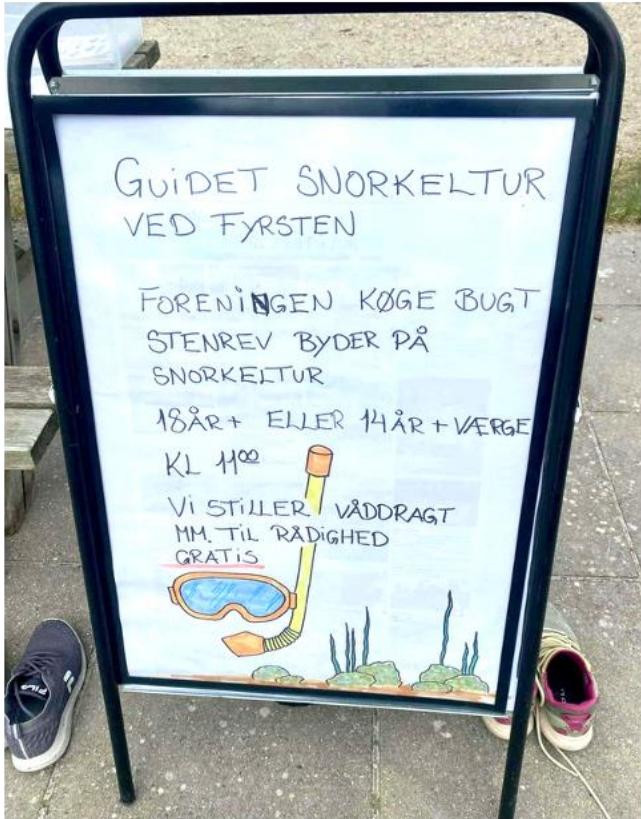 GUIDET SNORKELTUR
VED FYRSTEN
FORENINGEN KØGE BUGT
STENREV BYDER PÅ
SNORKELTUR
18ÅR+ ELLER 14ÅR + VÆRGE
KL 11⁰⁰
Vi STILLER VÅDDRAGT
MM. TIL RÅDIGHED
GRATIS
FILA